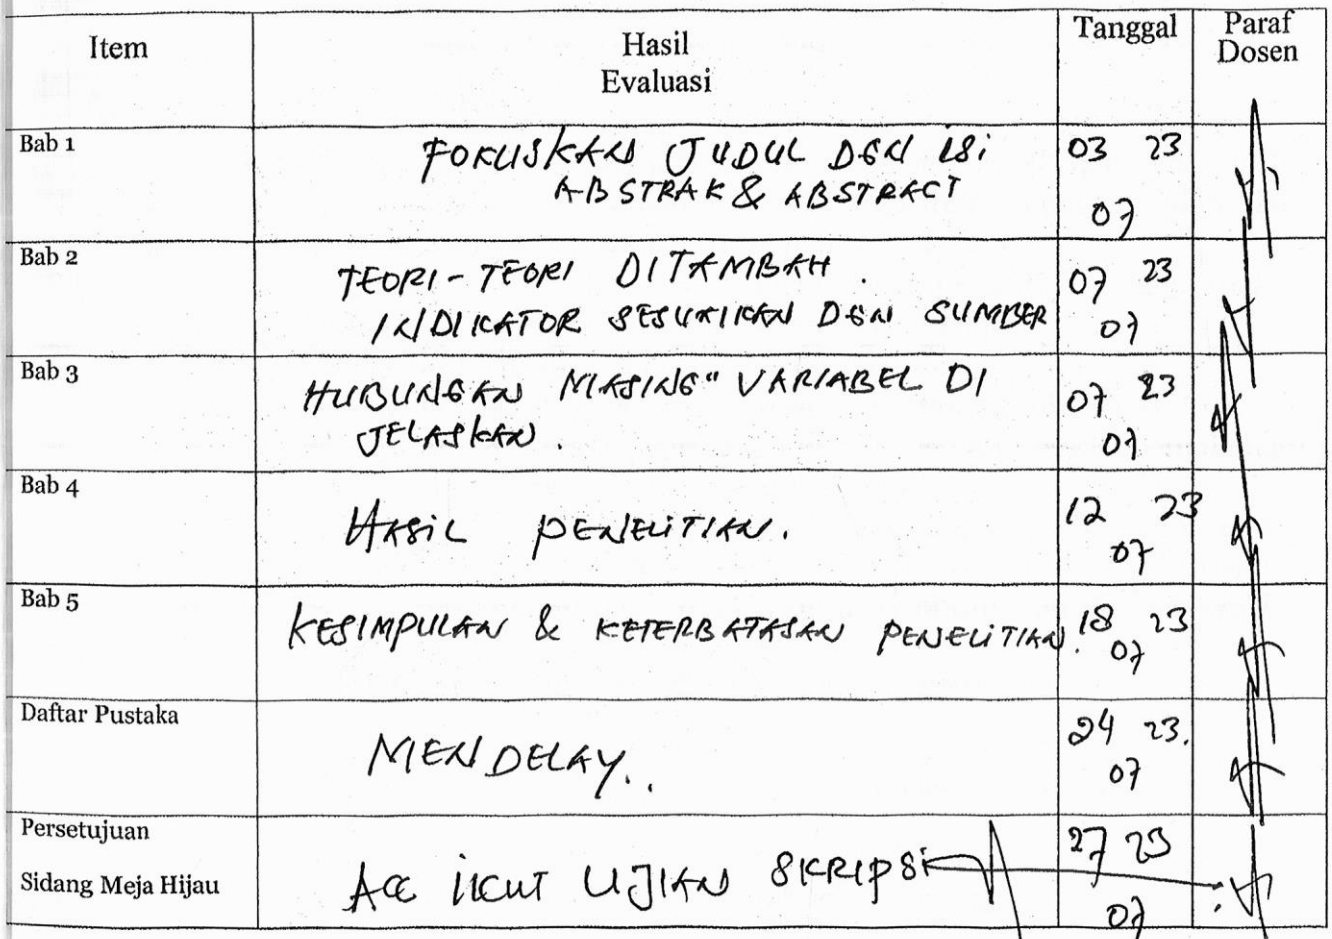 Item
Hasil
Evaluasi
Tanggal
Paraf
Dosen
Bab 1
FOKUSKAN JUDUL DGN ISi
ABSTRAK & ABSTRACT
03 23
07
Bab 2
TEORI-TEORI DITAMBAH.
INDIKATOR SESUAIKAN DGN SUMBER
07 23
07
Bab 3
HUBUNGAN MASING" VARIABEL DI
JELASKAN.
07 23
07
Bab 4
HASiL PENELiTIAN.
12 23
07
Bab 5
KESIMPULAN & KETERBATASAN PENELiTIAN.
18 23
07
Daftar Pustaka
MENDELAY..
24 23.
07
Persetujuan
Sidang Meja Hijau
Acc iKUT UJIAN SKRIPSi
27 23
07